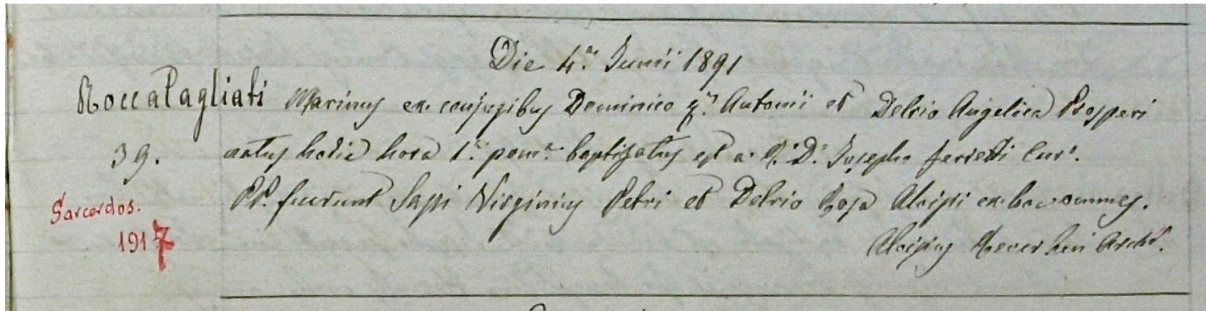 Die 4.ª Junii 1891
RoccaTagliati Marinus ex conjugibus Dominico q.m Antonii et Delrio Angelica Prosperi
39. natus hodie hora 1.ª pom.ª baptizatus est a R.D. Josepho Ferretti Cur.º
Sarcerdos. PP. fuerunt Sassi Virginius Petri et Delrio Rosa Aloisii ex hac omnes.
1917 Aloisius Archi.